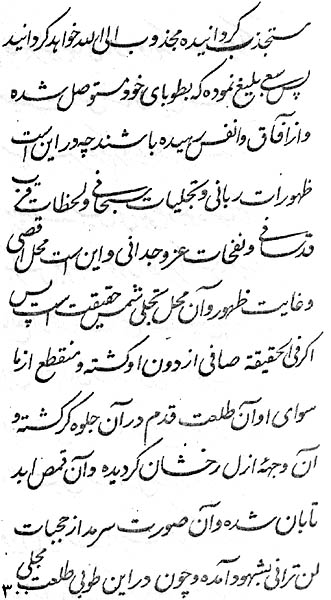 ستجذب گردانیده مجذوب الی الله خواهد گردانید
پس سعی بلیغ نموده که بطوبای خود متوصل شده
و از آفاق و انفس رهیده باشند چه در این است
ظهورات ربانی و تجلیات سبحانی و لحظات قرب
قدسانی و نفحات عز وجدانی و این است محل اقصی
و غایت ظهور و آن محل تجلی شمس حقیقت است پس
اگر فی الحقیقه صافی از دون او گشته و منقطع از ما
سوای او آن طلعت قدم در آن جلوه گر گشته و
آن وجههٔ ازل رخشان گردیده و آن قمص ابد
تابان شده و آن صورت سرمد از حجبات
لن ترانی بشهود آمده و چون در این طوبی طلعت مجلی
۳